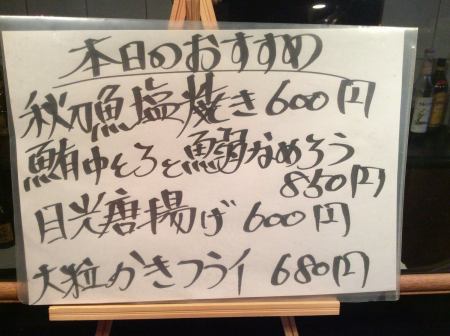 本日のおすすめ
秋刀魚塩焼き 600円
鮪中とろと鰯なめろう
850円
目光唐揚げ 600円
大粒かきフライ 680円